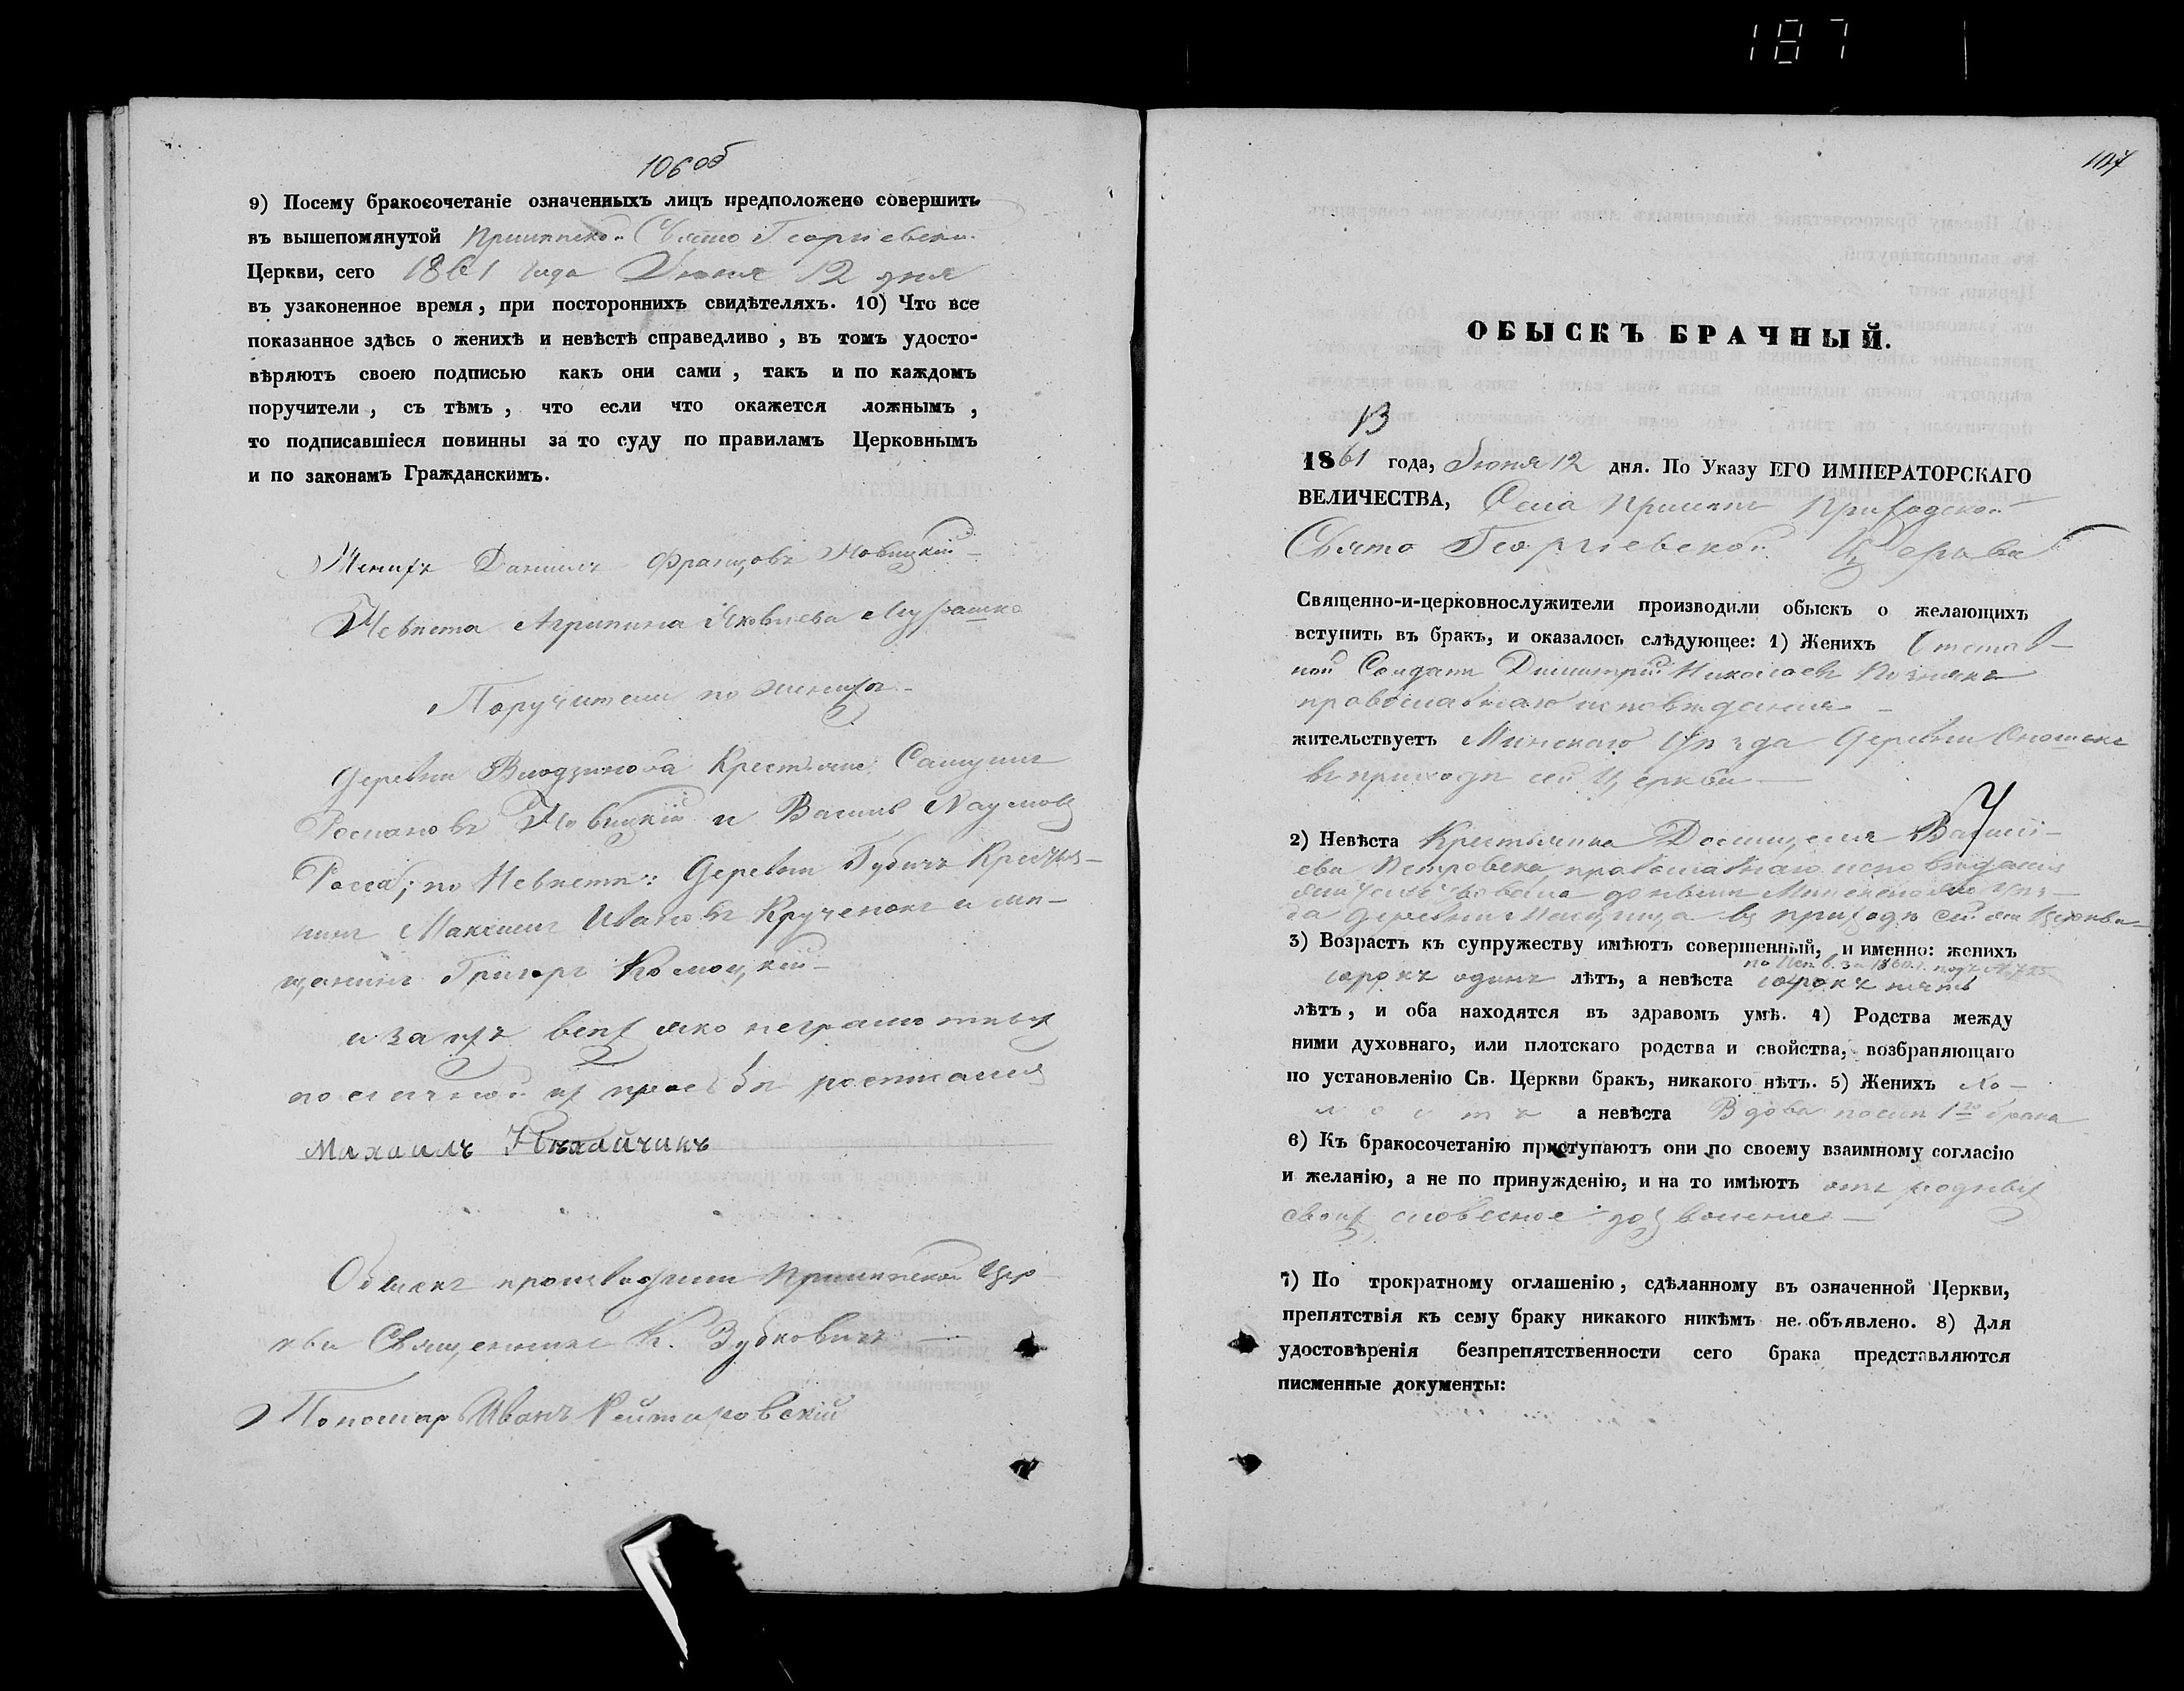 187
106об
9) Посему бракосочетаніе означенныхъ лицъ предположено совершить
въ вышепомянутой Свято Георгіевской
Церкви, сего 1861 года Іюня 12 дня
въ узаконенное время, при постороннихъ свидѣтеляхъ. 10) Что все
показанное здѣсь о женихѣ и невѣстѣ справедливо, въ томъ удосто-
вѣряютъ своею подписью какъ они сами, такъ и по каждомъ
поручители, съ тѣмъ, что если что окажется ложнымъ,
то подписавшіеся повинны за то суду по правиламъ Церковнымъ
и по законамъ Гражданскимъ.
Женихъ Даніилъ Францовъ Новицкій
Невѣста Агрипина Яковлева Мурашко
Поручители по женихѣ
Деревни Крестьяне Самуилъ
Романовъ Новицкій и Василь Наумовъ
по Невѣстѣ: Деревни Губичъ Крестья-
нинъ Максимъ Ивановъ Крученокъ и мѣ-
щанинъ Григорій
и за ихъ всѣхъ яко неграмотныхъ
по личной ихъ просьбѣ росписался
Михаилъ
Обыскъ производили Цер
кви Священникъ К. Зубковичъ
Пономарь Иванъ Рейтаровскій
107
ОБЫСКЪ БРАЧНЫЙ.
13
1861 года, Іюня 12 дня. По Указу ЕГО ИМПЕРАТОРСКАГО
ВЕЛИЧЕСТВА, Села Приходской
Свято Георгіевской Церкви
Священно-и-церковнослужители производили обыскъ о желающихъ
вступить въ бракъ, и оказалось слѣдующее: 1) Женихъ Отстав-
ной Солдатъ Димитрій Николаевъ
православнаго исповѣданія
жительствуетъ Минскаго Уѣзда Деревни
въ приходѣ сей Церкви
2) Невѣста Крестьянка Василі-
ева Петровска православнаго исповѣданія
жительствовала донынѣ Минскаго Уѣз-
да деревни въ приходѣ сей Церкви
3) Возрастъ къ супружеству имѣютъ совершенный, и именно: женихъ
по Исп. в. за 1860 г. подъ №
сорокъ одинъ лѣтъ, а невѣста сорокъ пять
лѣтъ, и оба находятся въ здравомъ умѣ. 4) Родства между
ними духовнаго, или плотскаго родства и свойства, возбраняющаго
по установленію Св. Церкви бракъ, никакого нѣтъ. 5) Женихъ Хо-
лостъ а невѣста Вдова послѣ 1го брака
6) Къ бракосочетанію приступаютъ они по своему взаимному согласію
и желанію, а не по принужденію, и на то имѣютъ отъ родныхъ
своихъ словесное дозволеніе
7) По трократному оглашенію, сдѣланному въ означенной Церкви,
препятствія къ сему браку никакого никѣмъ не объявлено. 8) Для
удостовѣренія безпрепятственности сего брака представляются
писменные документы: